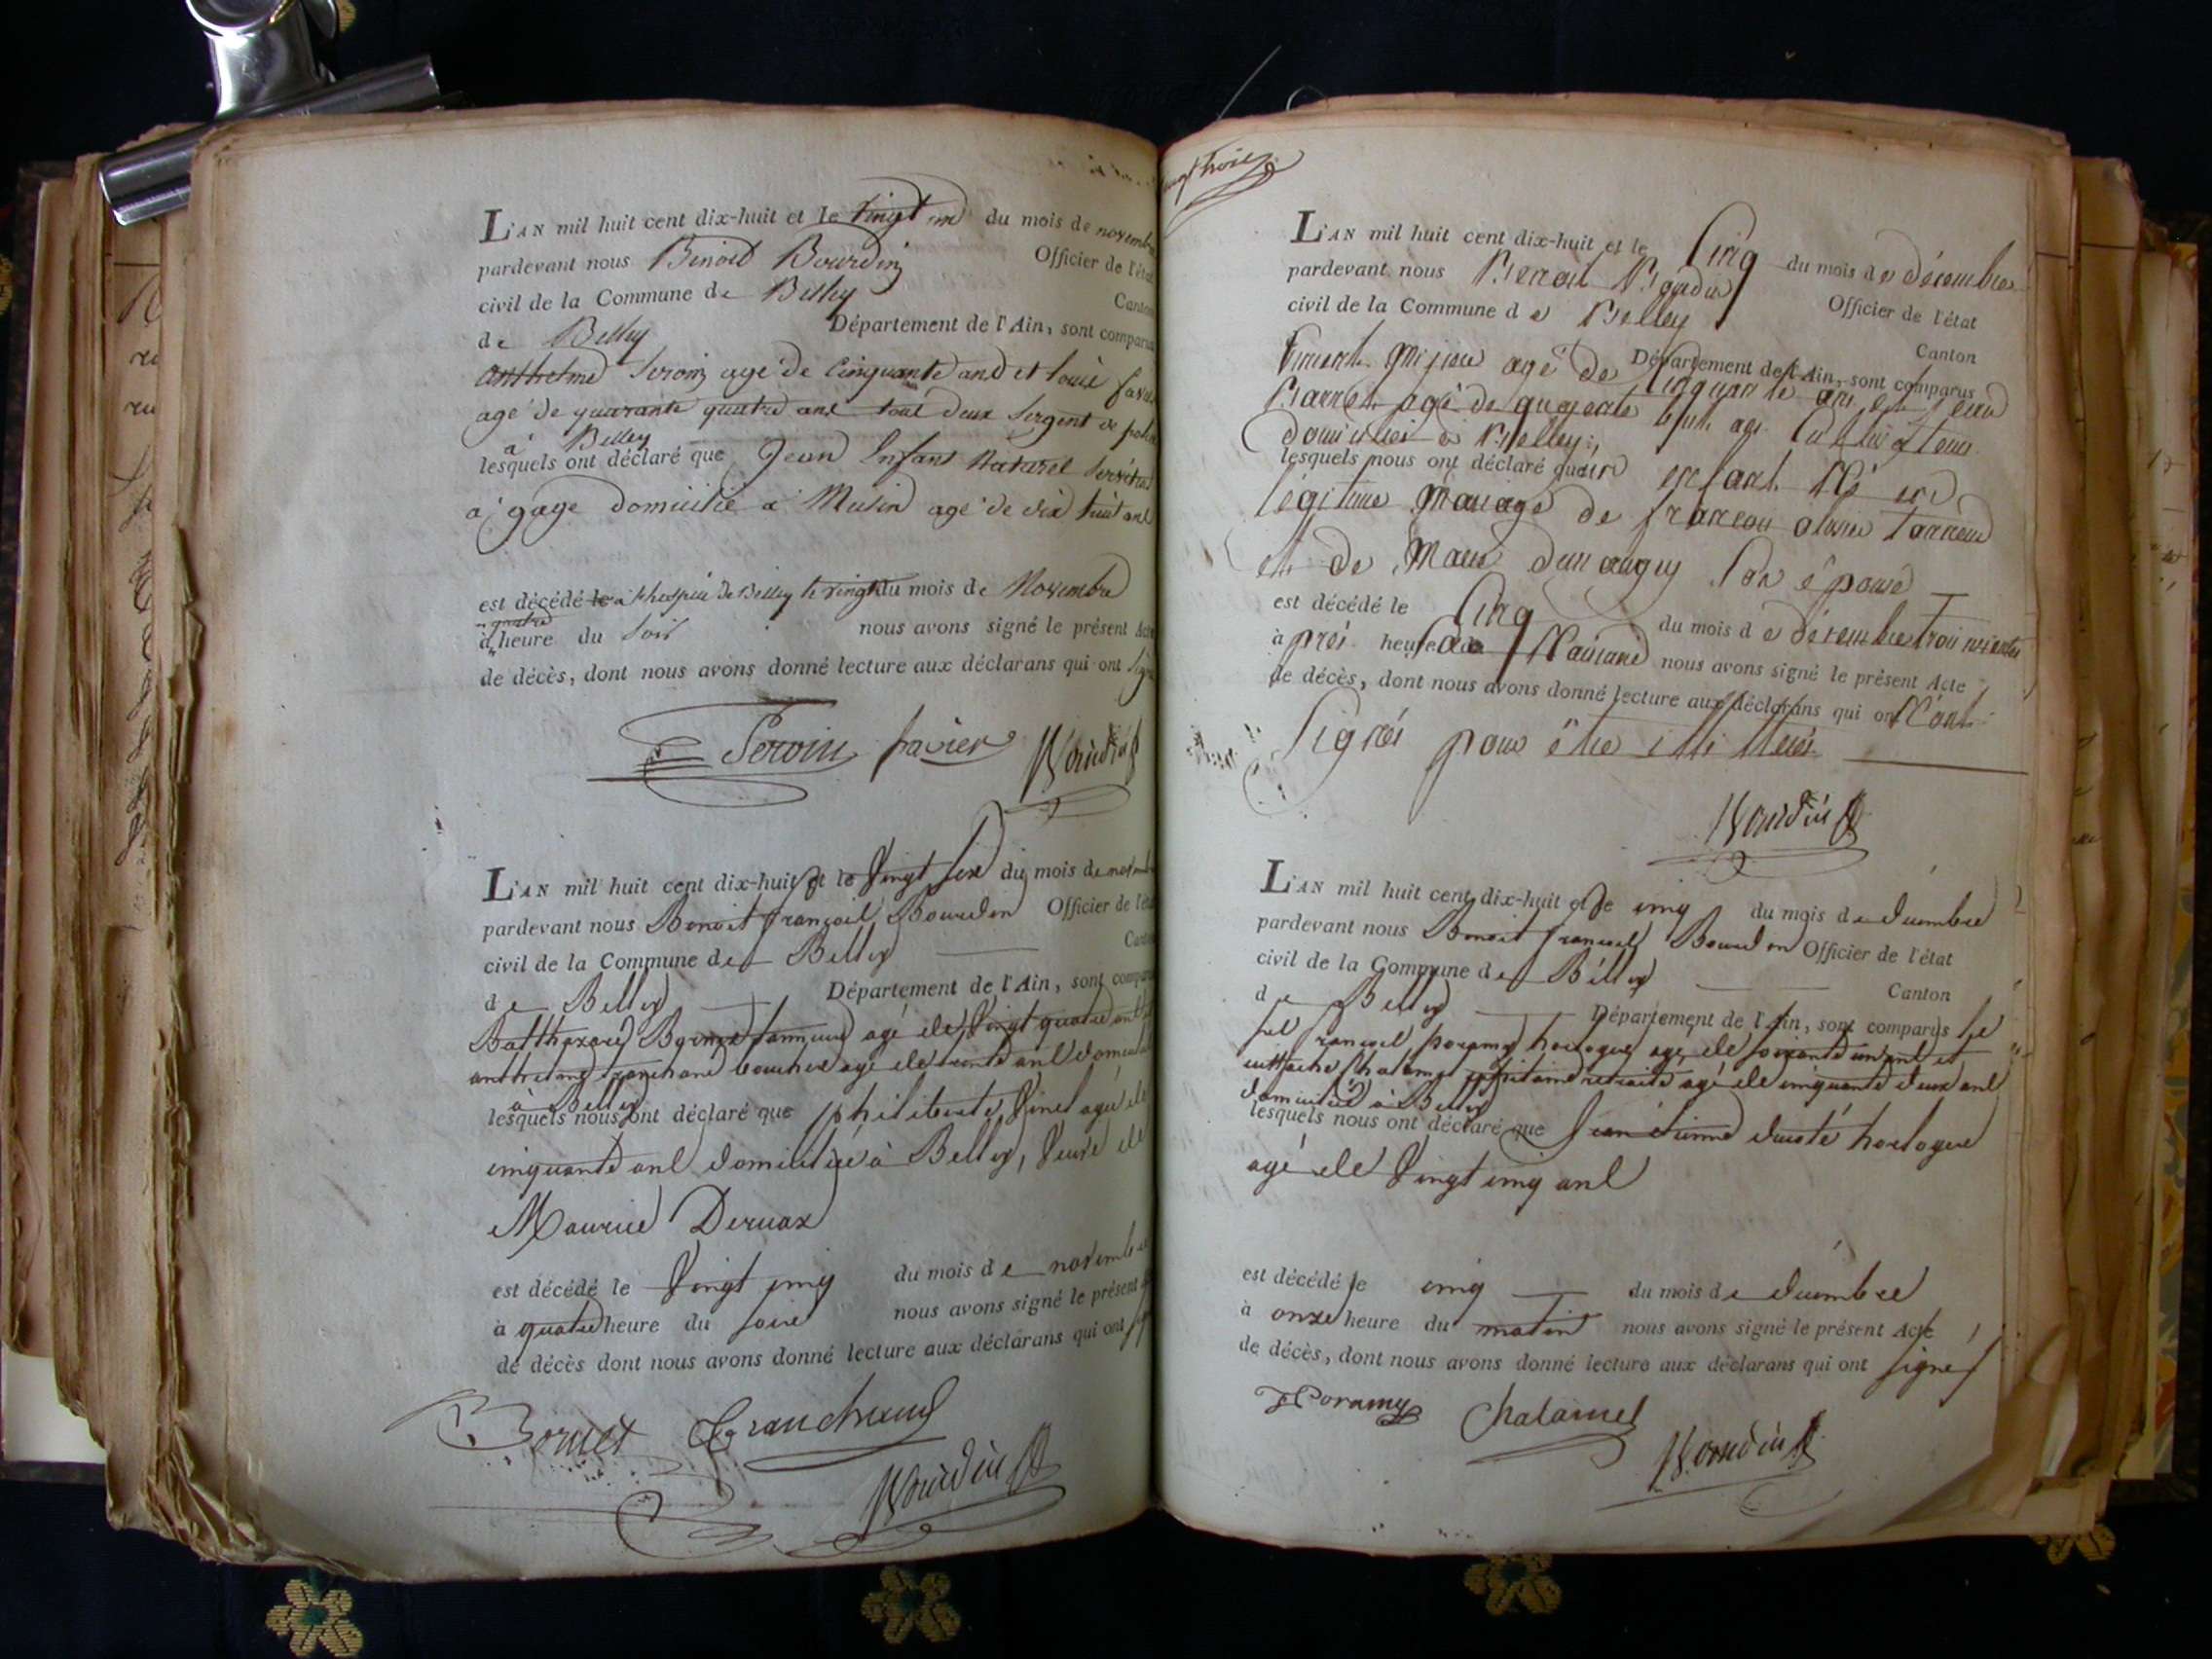 L'AN mil huit cent dix-huit et le vingt un du mois de novembre
pardevant nous Binoit Bourdin Officier de l'état
civil de la Commune de Belley Canton
de Belley Département de l'Ain, sont comparus
anthelme Seroin agé de cinquante ans et Louis favier
agé de quarante quatre ans tout deux Sergent de police
à Belley
lesquels ont déclaré que Jean Enfant Naturel
à gage domicilié a Musin agé de dix huit ans
est décédé le a l'hospice de Belley le vingt du mois de Novembre
quatre
à heure du Soir nous avons signé le présent Acte
de décès, dont nous avons donné lecture aux déclarans qui ont signé
Seroin favier Bourdin
L'AN mil huit cent dix-huit et le Vingt six du mois de novembre
pardevant nous Benoit françois Bourdin Officier de l'état
civil de la Commune de Belley Canton
de Belley Département de l'Ain, sont comparus
Balthazard Bornet tanneur agé de Vingt quatre ans
anthelme tranchand boucher agé de trente ans domiciliés
à Belley
lesquels nous ont déclaré que philiberte Vinet agée de
cinquante ans domiciliée à Belley, Veuve de
Maurice Deruaz
est décédé le Vingt cinq du mois de novembre
à quatre heure du soire nous avons signé le présent
de décès dont nous avons donné lecture aux déclarans qui ont
Bornet Tranchand
Bourdin
vingt trois
L'AN mil huit cent dix-huit et le Cinq du mois de décembre
pardevant nous Benoit Bourdin Officier de l'état
civil de la Commune de Belley Canton
Vincent agé de Cinquante ans et
Département de l'Ain, sont comparus
agé de quarante huit ans Cultivateurs
domiciliés à Belley
lesquels nous ont déclaré qu'un enfant Né en
légitime Mariage de
et de Marie Son épouse
est décédé le Cinq du mois de décembre trois
à près heure de nous avons signé le présent Acte
de décès, dont nous avons donné lecture aux déclarans qui ont N'ont
Signés pour être illitterés
Bourdin
L'AN mil huit cent dix-huit et le cinq du mois de decembre
pardevant nous Benoit francois Bourdin Officier de l'état
civil de la Commune de Belley Canton
de Belley Département de l'Ain, sont comparus
francois horloger agé de soixante un ans et
Chalamel capitaine retraité agé de cinquante deux ans
domiciliés à Belley
lesquels nous ont déclaré que Jean étienne horloger
agé de Vingt cinq ans
est décédé le cinq du mois de decembre
à onze heure du matin nous avons signé le présent Acte
de décès, dont nous avons donné lecture aux déclarans qui ont signés
Chalamel
Bourdin